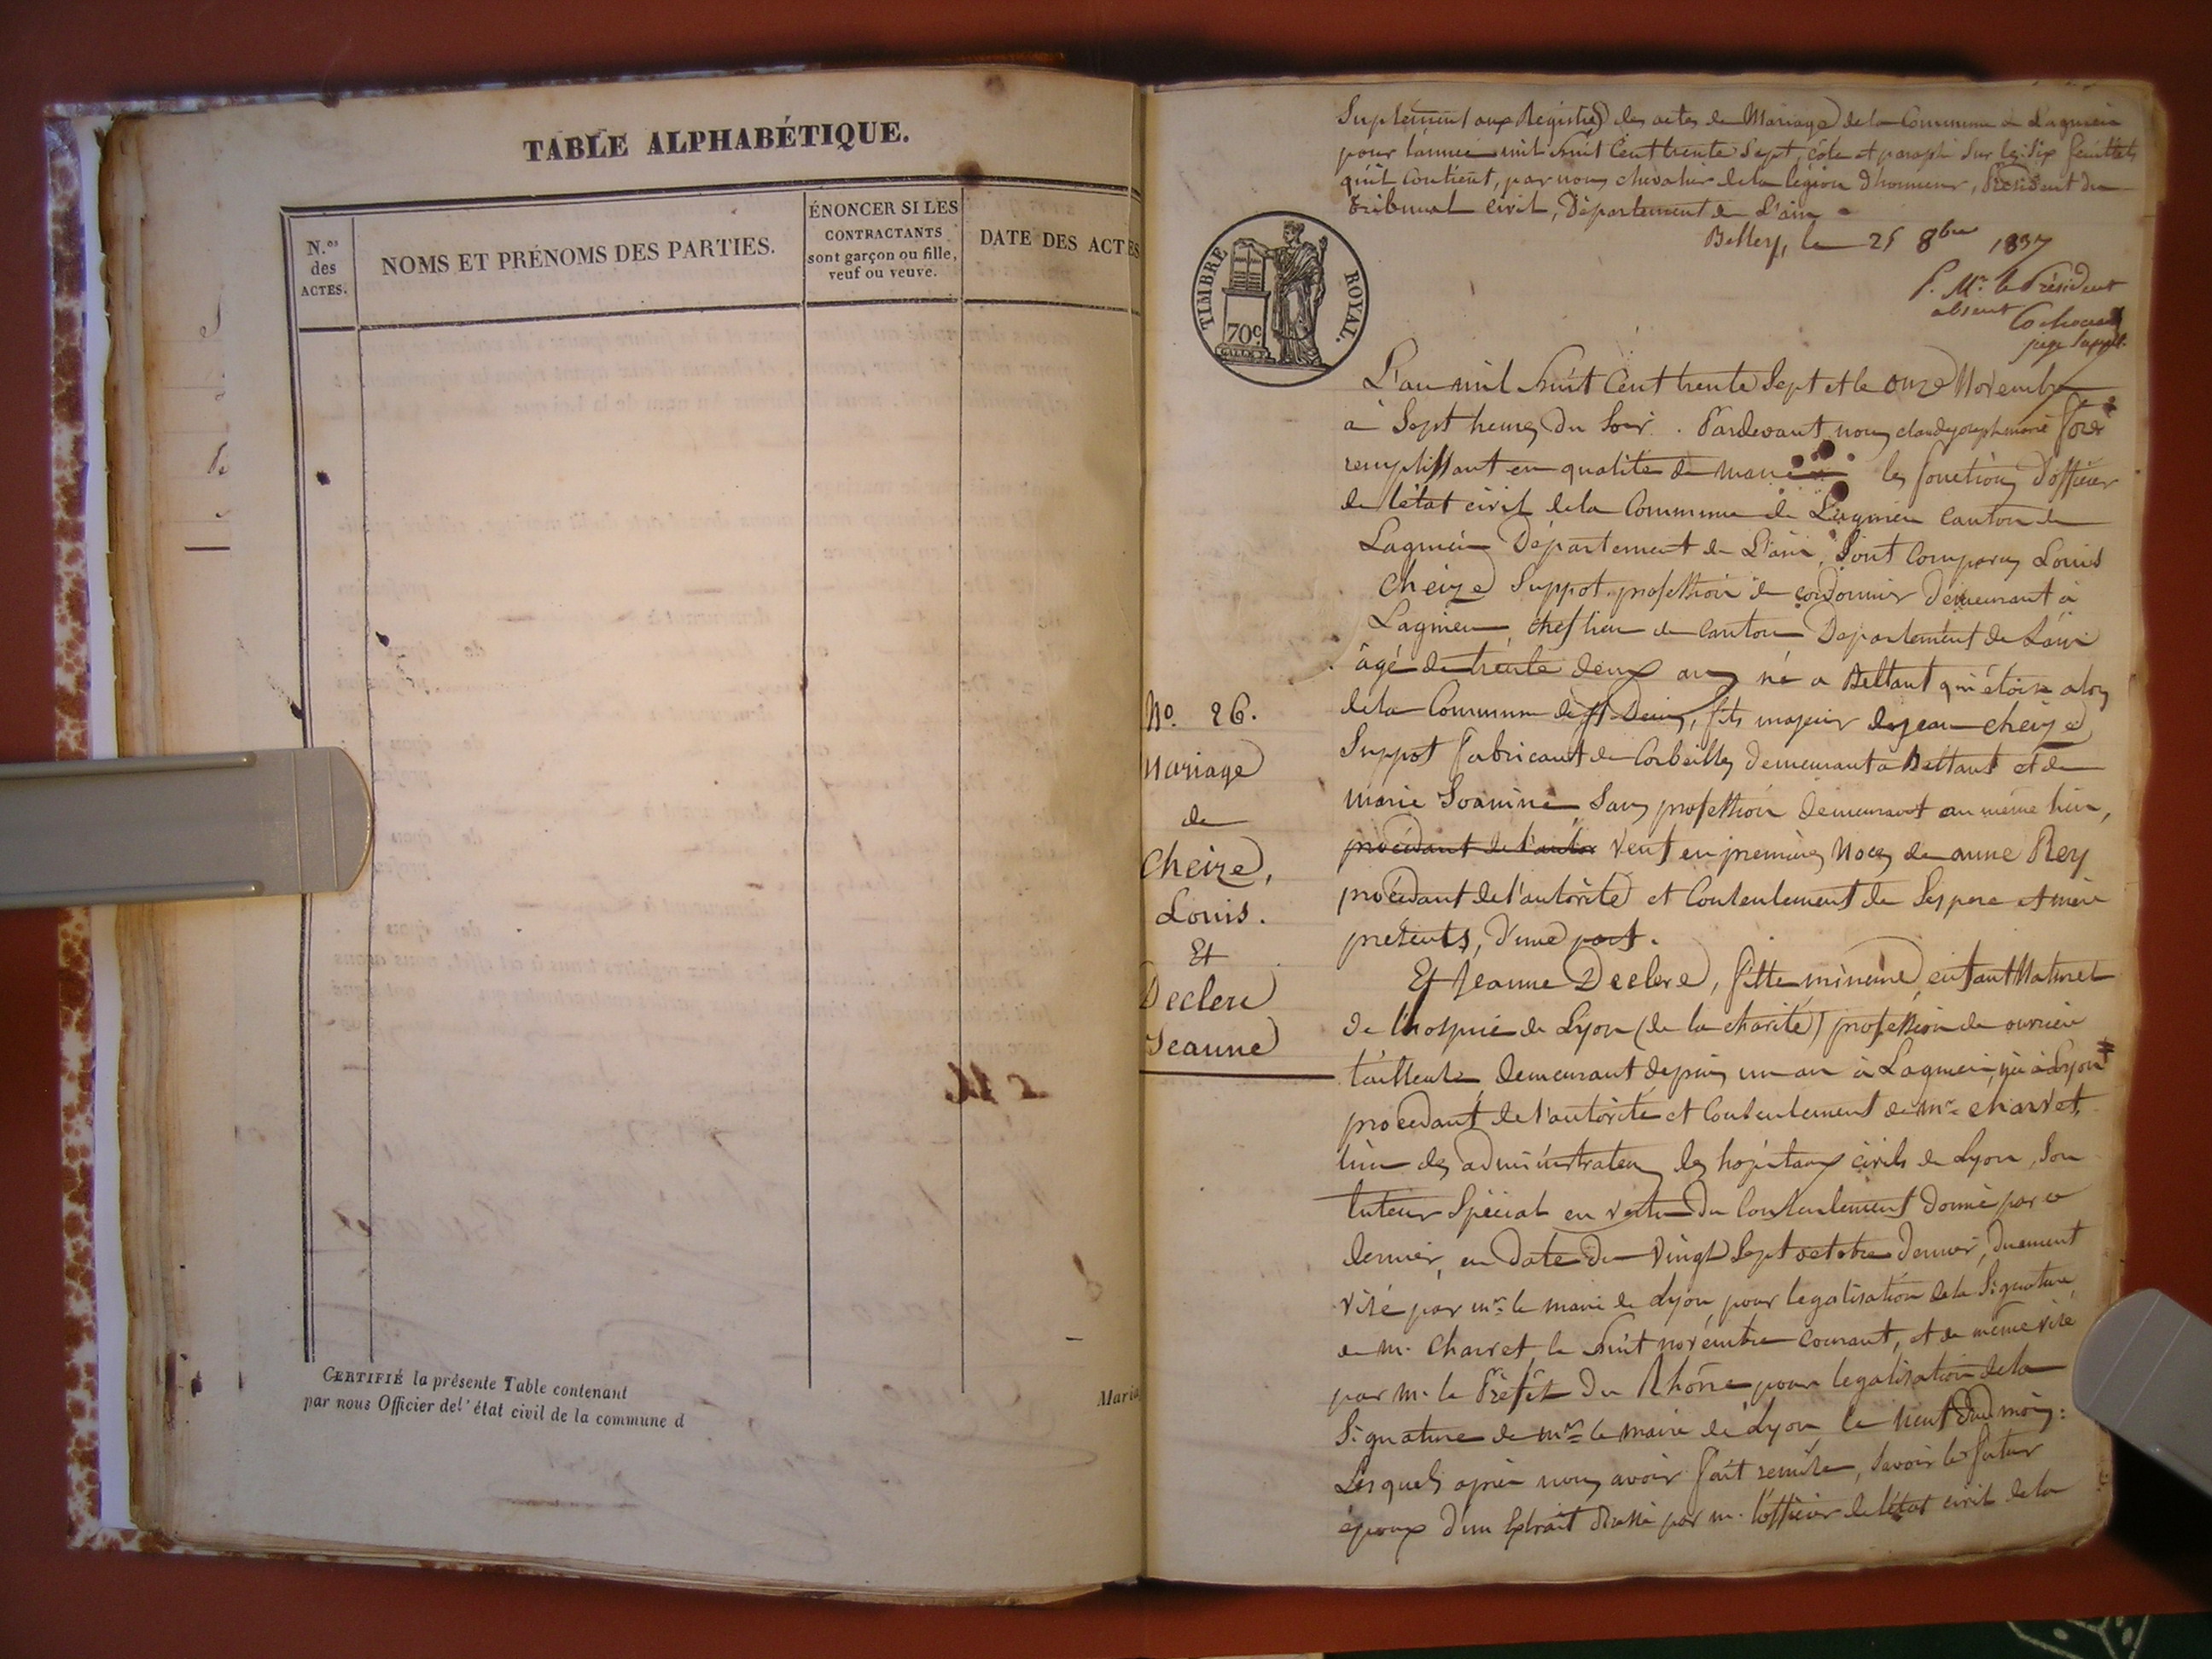 TABLE ALPHABÉTIQUE.
N.os
des
ACTES.
NOMS ET PRÉNOMS DES PARTIES.
ÉNONCER SI LES
CONTRACTANTS
sont garçon ou fille,
veuf ou veuve.
DATE DES ACTES
CERTIFIÉ la présente Table contenant
par nous Officier de l'état civil de la commune d
Maria
Suplément aux Registres des actes de Mariage de la Commune de Lagnieu
pour l'année mil huit Cent trente Sept, côté et paraphé Sur les Six feuillets
qu'il Contient, par nous chevalier de la légion d'honneur, Président du
Tribunal Civil, Département de L'ain
Belley, le 25 8bre 1837
P. Mr. le Président
absent
juge Suppt.
TIMBRE ROYAL.
70c
L'an mil huit Cent trente Sept et le onze Novembre
à Sept heures du Soir. Pardevant nous claude joseph marie
remplissant en qualité de maire les fonctions d'officier
de l'état civil de la Commune de Lagnieu Canton de
Lagnieu Département de L'ain, Sont Comparus Louis
Cheize Suppot profession de cordonnier demeurant à
Lagnieu, chef lieu de Canton Département de L'ain
âgé de trente deux ans né a Bettant qui étoit alors
de la Commune de St. Denis, fils majeur de jean cheize
Suppot fabricant de Corbeilles demeurant a Bettant et de
marie Soanine Sans profession demeurant au même lieu,
procédant de l'autor veuf en premières Noces de anne Rey
procédant de l'autorité et Consentement de Ses pere et mère
présents, d'une part.
No. 26.
Mariage
de
Cheize,
Louis.
Et
Declere
Jeanne
Et Jeanne Declere, fille mineure, enfant Naturel
de l'hospice de Lyon (de la charité) profession de ouvrière
tailleuse demeurant depuis un an à Lagnieu, née à Lyon
procédant de l'autorité et Consentement de Mr. Charvet,
l'un des administrateurs des hôpitaux civils de Lyon, Son
tuteur Spécial en vertu du Consentement donné par ce
dernier, en date du vingt Sept octobre dernier, duement
visé par mr. le maire de Lyon, pour légalisation de la Signature
de m. Charvet, le huit novembre Courant, et de même visé
par m. le Préfet du Rhône pour legalisation de la
Signature de mr. le maire de Lyon le neuf dud. mois:
Lesquels après nous avoir fait remise, Savoir le futur
époux d'un Extrait dressé par m. l'officier de l'état civil de la